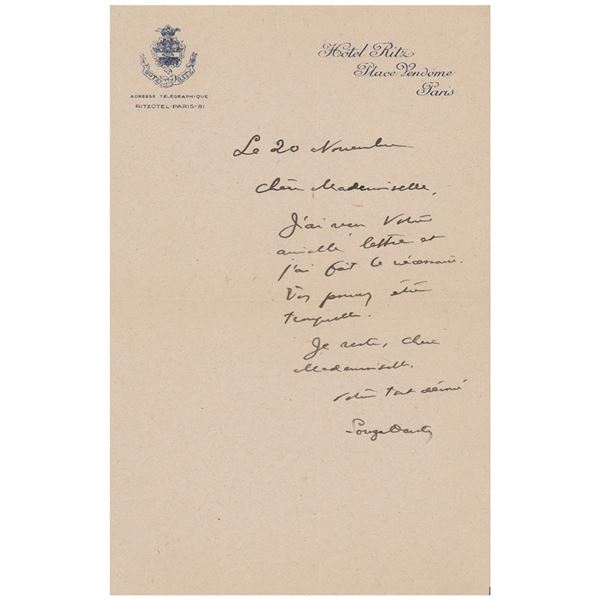 HOTEL RITZ
ADRESSE TÉLÉGRAPHIQUE
RITZOTEL-PARIS-81
Hôtel Ritz
Place Vendôme
Paris
Le 20 Novembre
Chère Mademoiselle,
J'ai reçu Votre
aimable lettre et
j'ai fait le nécessaire.
Vous pouvez être
tranquille.
Je reste, chère
Mademoiselle.
Votre tout dévoué
Souza Dantas